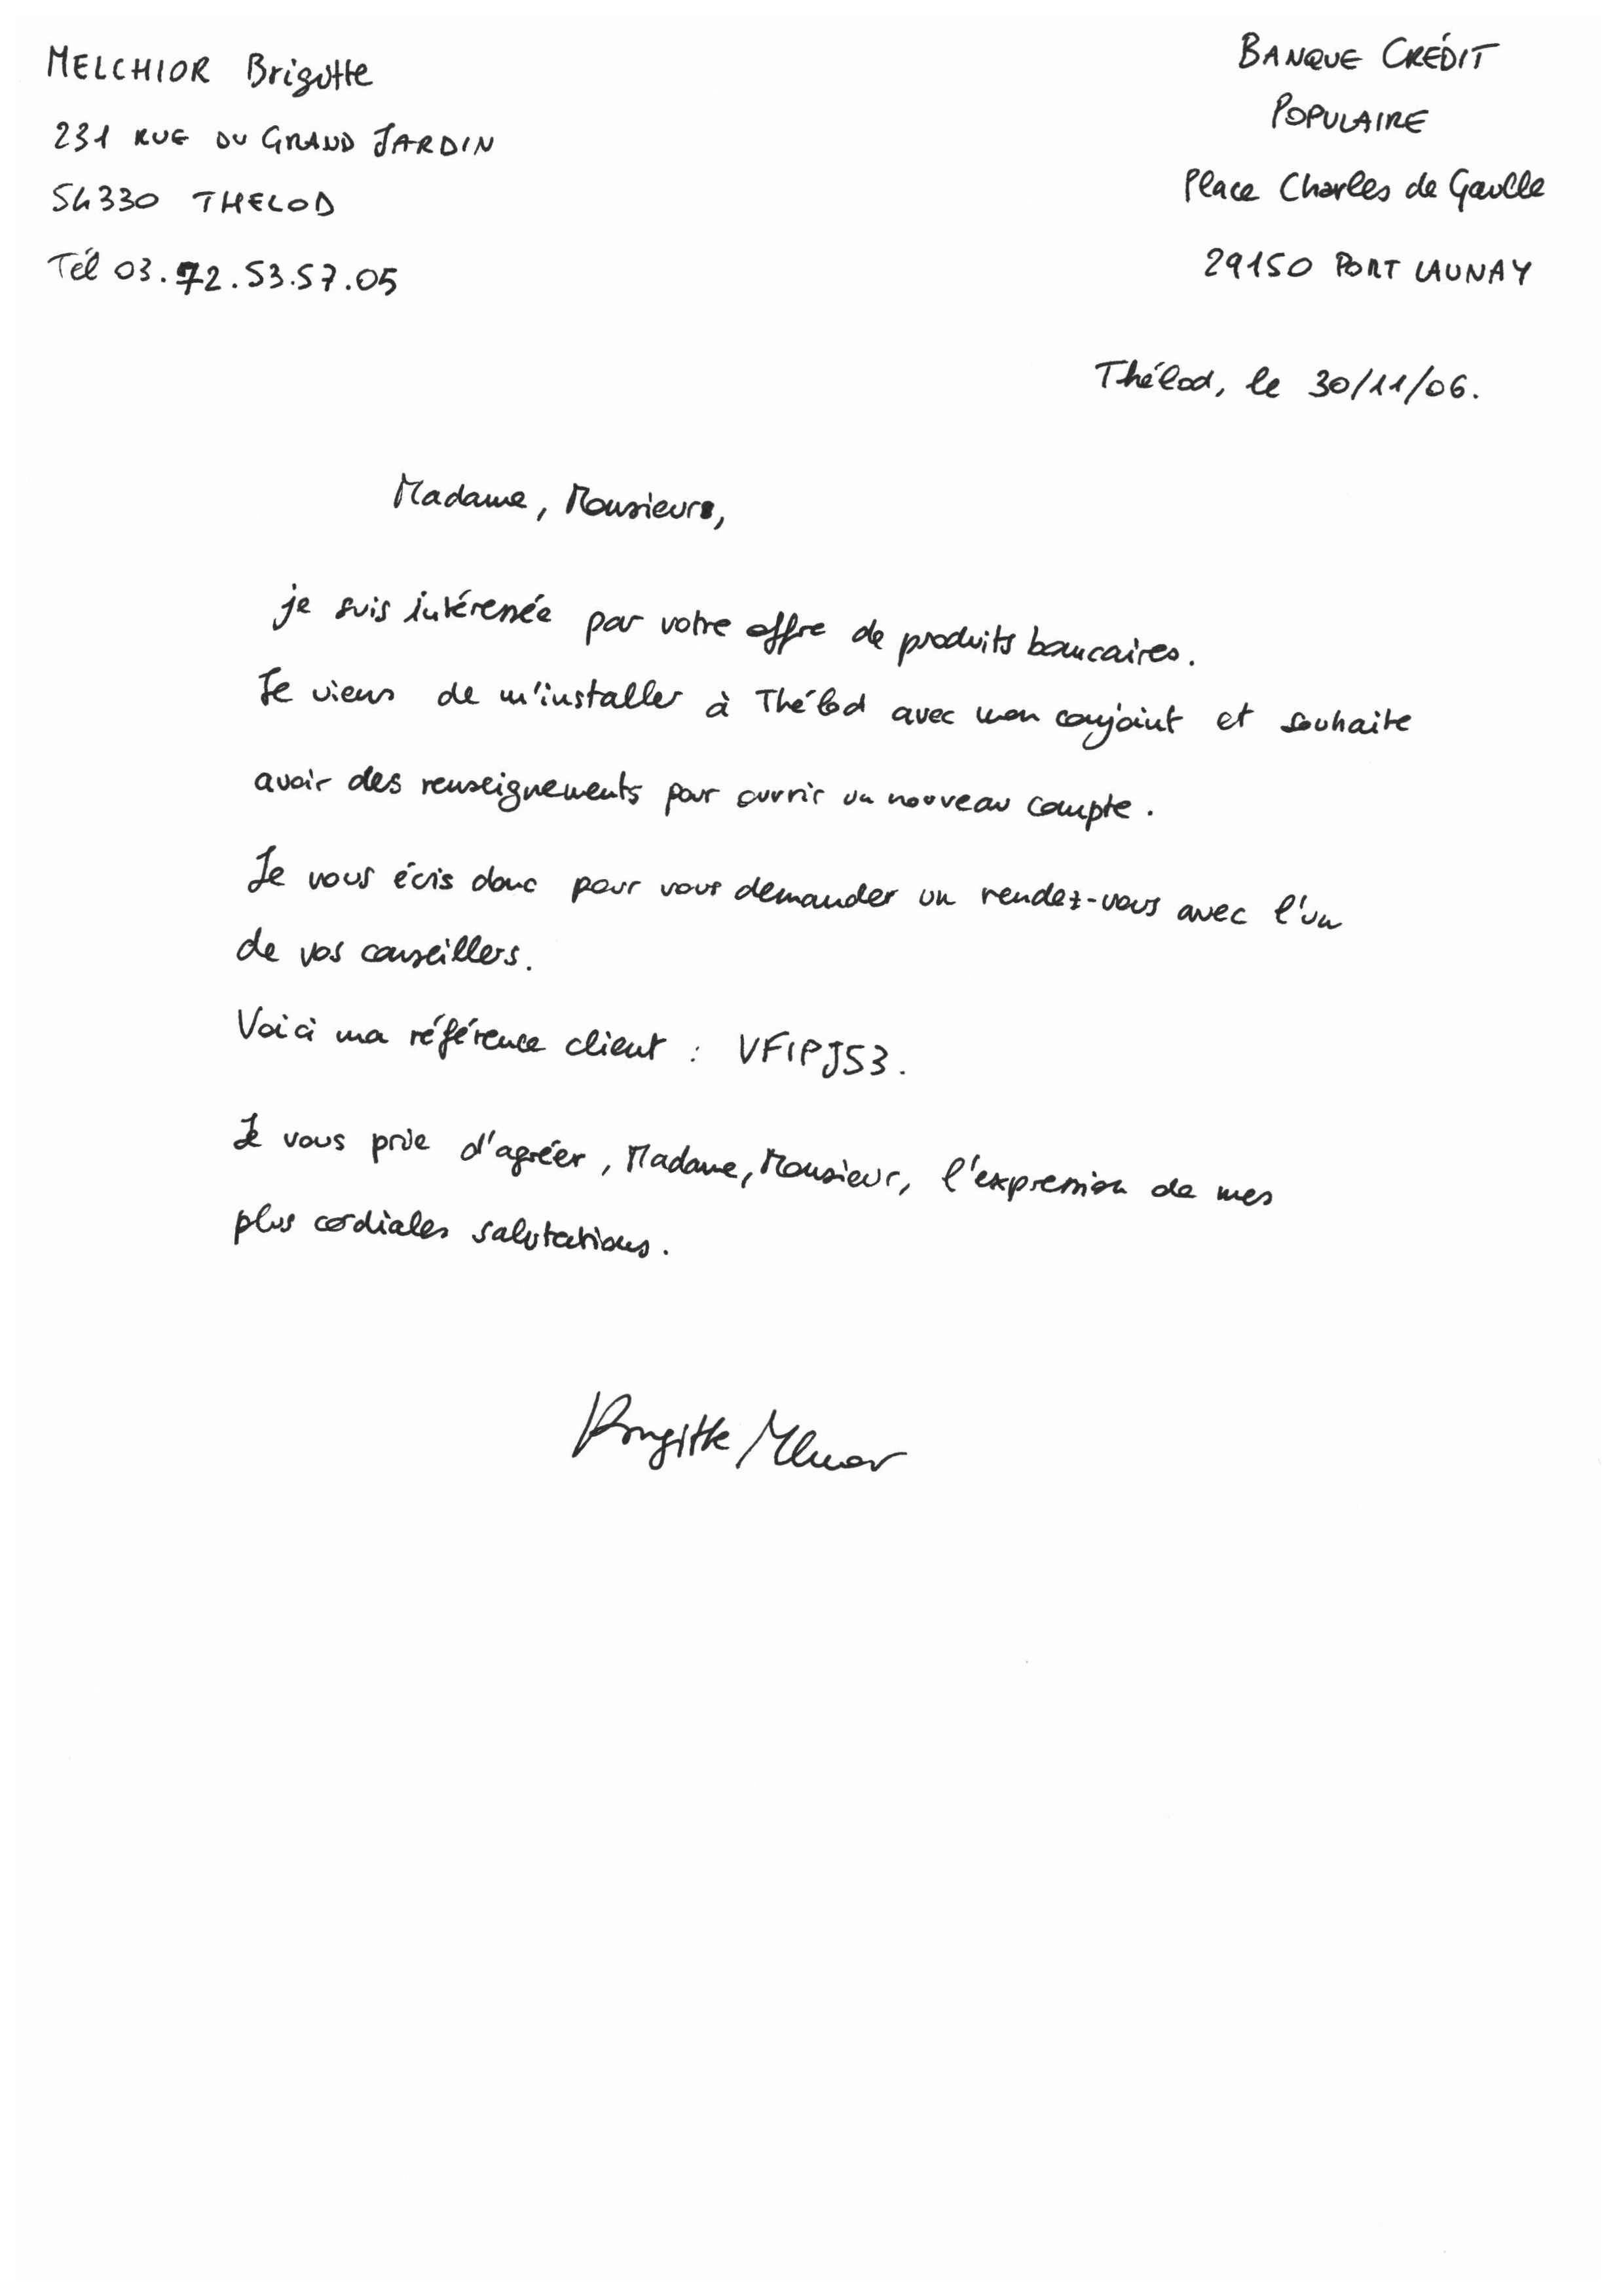 MELCHIOR Brigitte
231 RUE DU GRAND JARDIN
54330 THELOD
Tél 03.72.53.57.05
BANQUE CRÉDIT
POPULAIRE
Place Charles de Gaulle
29150 PORT LAUNAY
Thélod, le 30/11/06.
Madame, Monsieur,
je suis intéressée par votre offre de produits bancaires.
Je viens de m'installer à Thélod avec mon conjoint et souhaite
avoir des renseignements pour ouvrir un nouveau compte.
Je vous écis donc pour vous demander un rendez-vous avec l'un
de vos conseillers.
Voici ma référence client : VFIPJ53.
Je vous prie d'agréer, Madame, Monsieur, l'expression de mes
plus cordiales salutations.
Brigitte